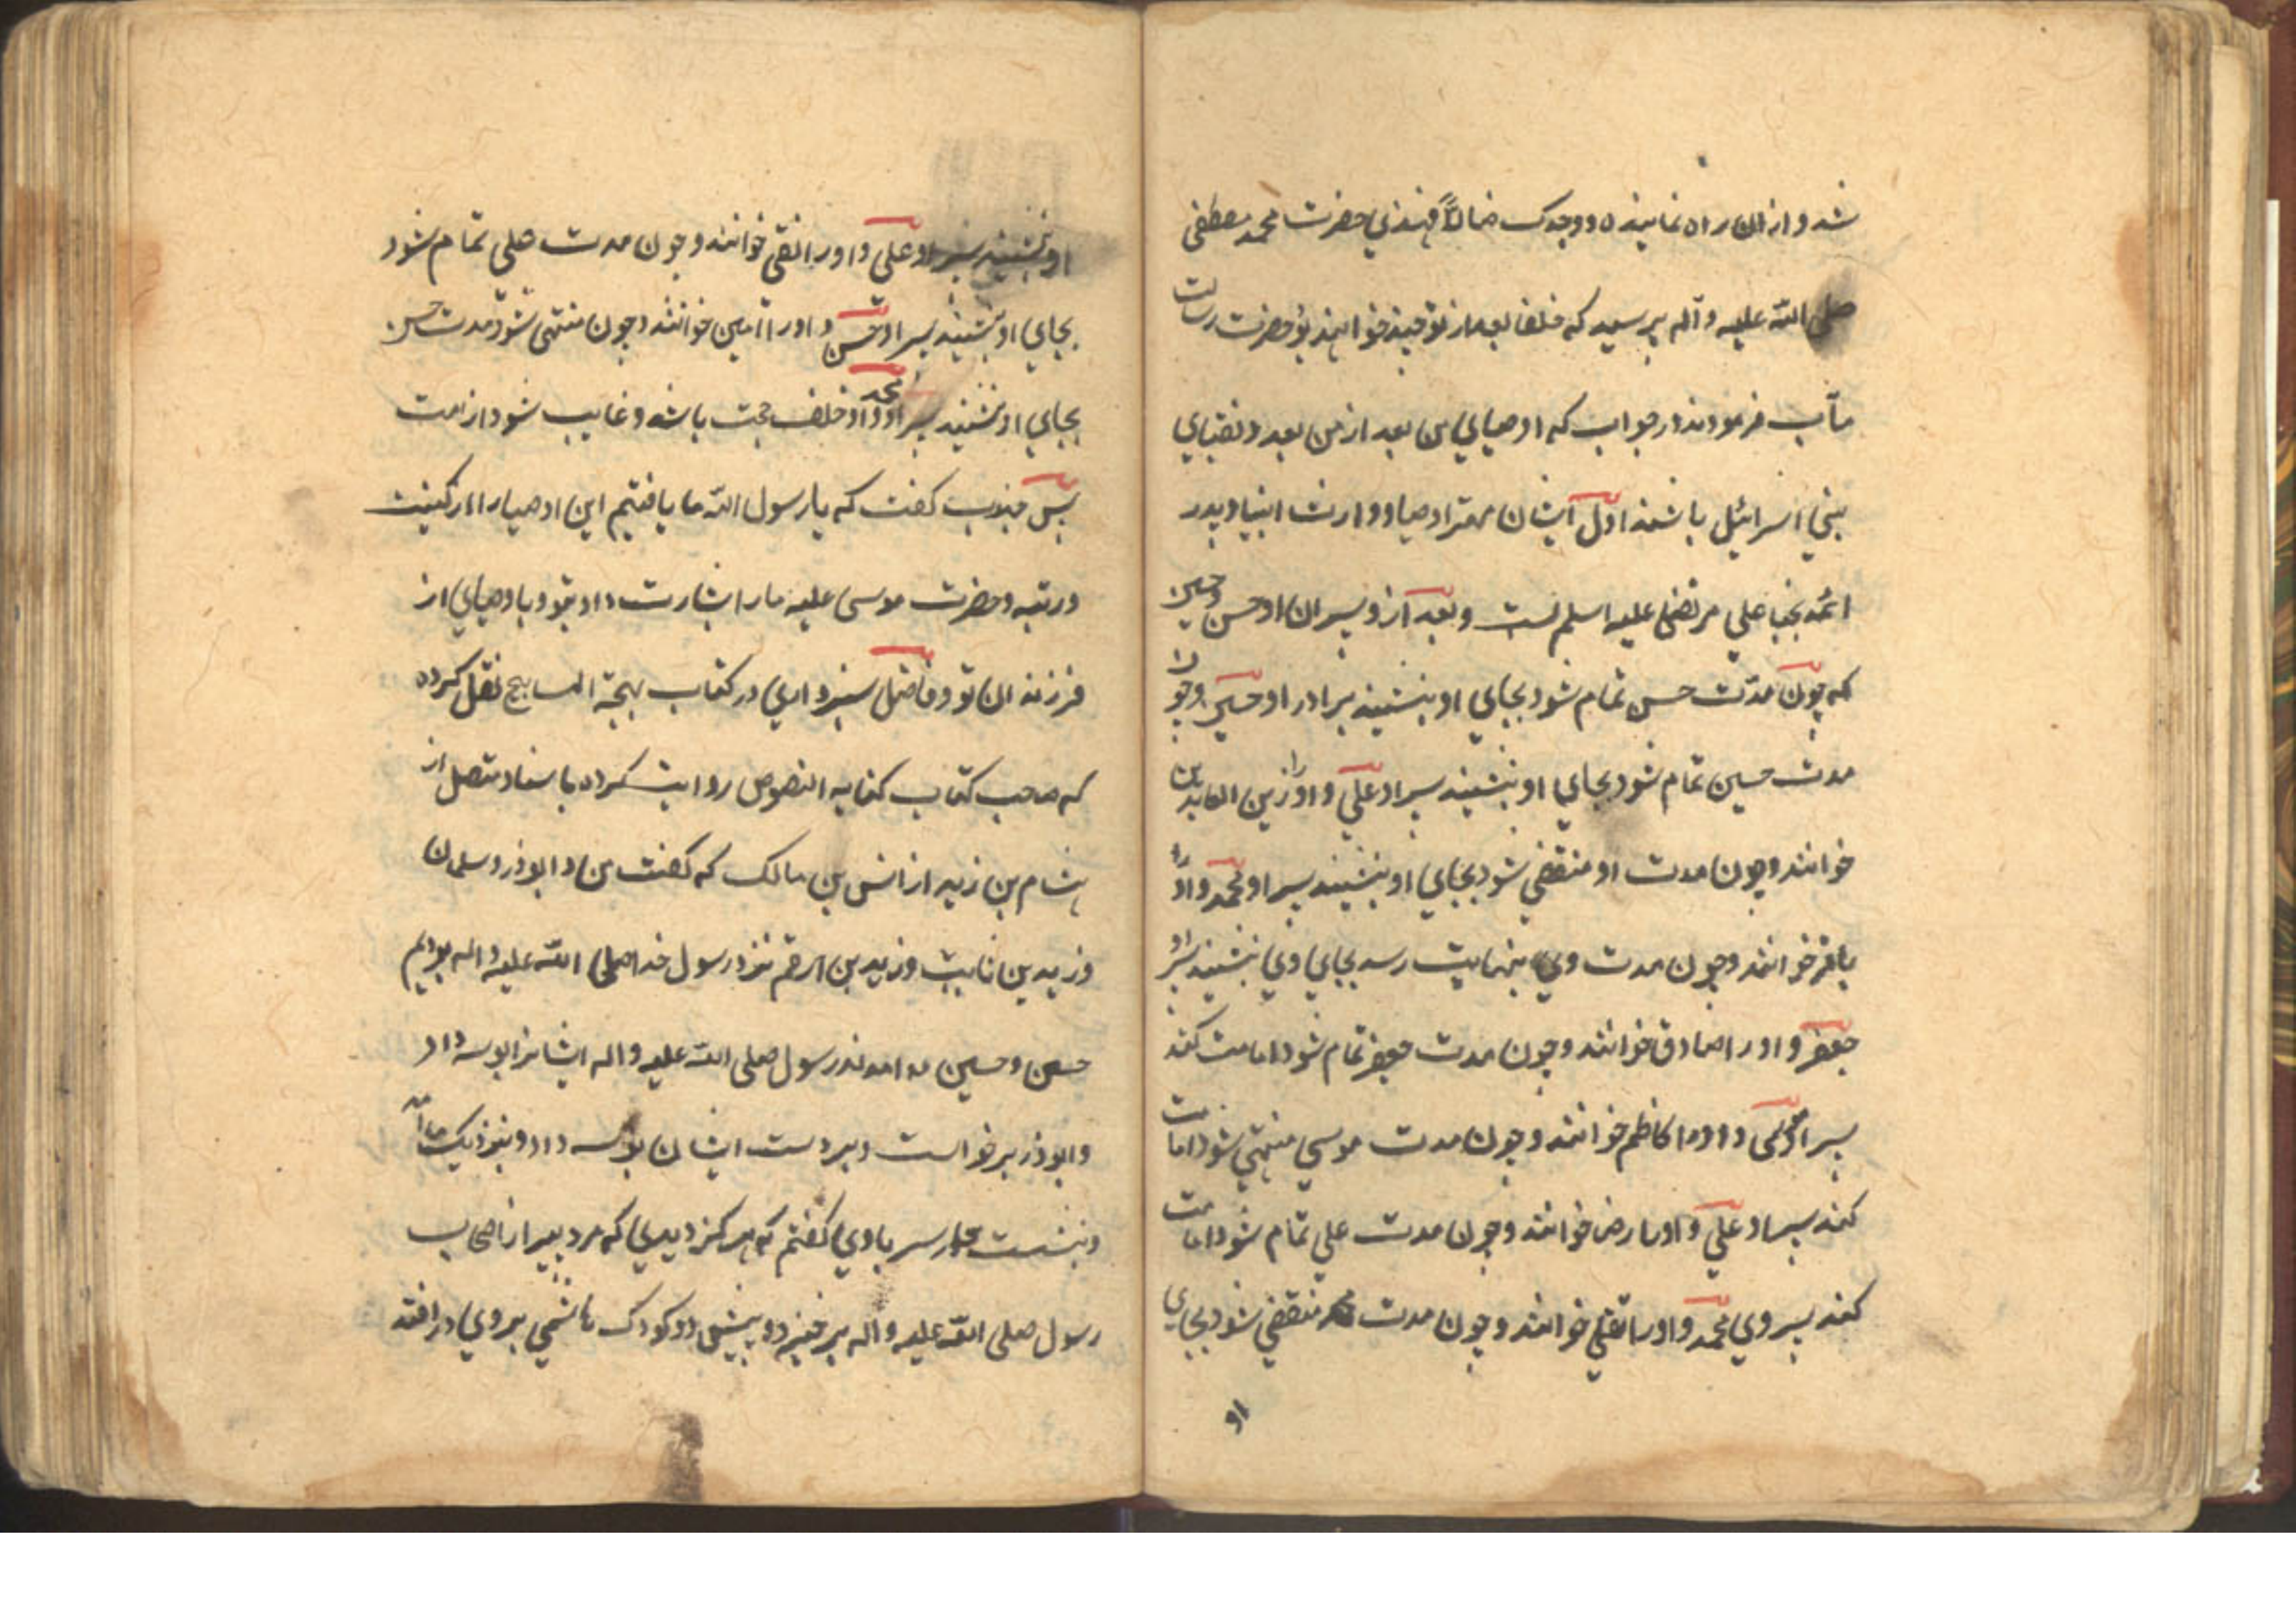 شد و از ان راه نماینده ووجدک ضالاً فهدی حضرت محمد مصطفی
صلی الله علیه وآله پرسید که خلفا بعد از تو چند خواهند بود حضرت رسالت
مآب فرمودند در جواب که اوصیای من بعد از من بعدد نقبای
بنی اسرائیل باشند اول ایشان مهتر اوصیا و وارث انبیا و پدر
ائمه نجبا علی مرتضی علیه اسلم است و بعد از و پسران او حسن و حسین
که چون مدّت حسن تمام شود بجای او بنشیند برادر او حسین و چون
مدت حسین تمام شود بجای او بنشیند پسر او علی و او را زین العابدین
خوانند و چون مدت او منقضی شود بجای او بنشیند پسر او محمد و او را
باقر خوانند و چون مدت وی بنهایت رسد بجای وی بنشیند پسر او
جعفر و او را صادق خوانند و چون مدت جعفر تمام شود امامت کند
پسر او موسی و او را کاظم خوانند و چون مدت موسی منتهی شود امامت
کند پسر او علی و او را رضا خوانند و چون مدت علی تمام شود امامت
کند پسر وی محمد و او را تقی خوانند و چون مدت محمد منقضی شود بجای
او
او بنشیند پسر او علی و او را نقی خوانند و چون مدت علی تمام شود
بجای او بنشیند پسر او حسن و او را امین خوانند و چون منتهی شود مدت حسن
بجای او بنشیند پسر او محمد و او خلف حجت باشد و غایب شود از امت
پس جندب کفت که یا رسول الله ما یافتیم این اوصیا را
در توریة و حضرت موسی علیه ما را بشارت داد بتو و باوصیای از
فرزندان تو و فاضل سبزواری در کتاب بهجة المباهج نقل کرده
که صاحب کتاب کفایه النصوص روایت کرده باسناد متصل از
هشام بن زید از انس بن مالک که کفت من و ابوذر و سلمان
و زید بن ثابت و زید بن ارقم نزد رسول خدا صلی الله علیه واله بودیم
حسن و حسین در امدند رسول صلی الله علیه واله ایشانرا بوسه داد
و ابوذر برخواست و بر دست ایشان بوسه داد و بنزدیک ما آمد
و بنشست سر با وی کفتم که هرکز دیدی که مرد پیر از اصحاب
رسول صلی الله علیه وآله برخیزد و پیش دو کودک هاشمی بر وی در افتد